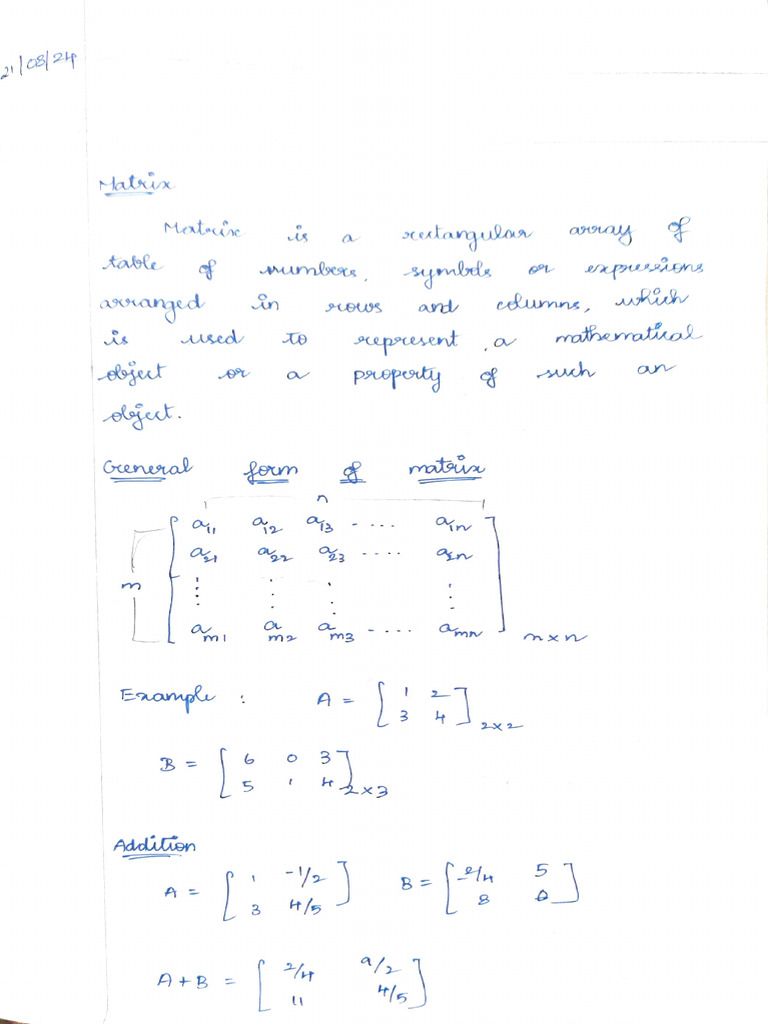 21/08/24
Matrix
Matrix is a rectangular array of
table of numbers, symbols or expressions
arranged in rows and columns, which
is used to represent a mathematical
object or a property of such an
object.
General form of matrix
n
a11 a12 a13 - .... a1n
a21 a22 a23 .... a2n
m
am1 am2 am3 - .... amn
m×n
Example : A = [ 1 2
3 4 ] 2×2
B = [ 6 0 3
5 1 4 ] 2×3
Addition
A = [ 1 -1/2 B = [ 5
3 4/5 ] 8 0 ]
A+B = [ 2/4 9/2
11 4/5 ]